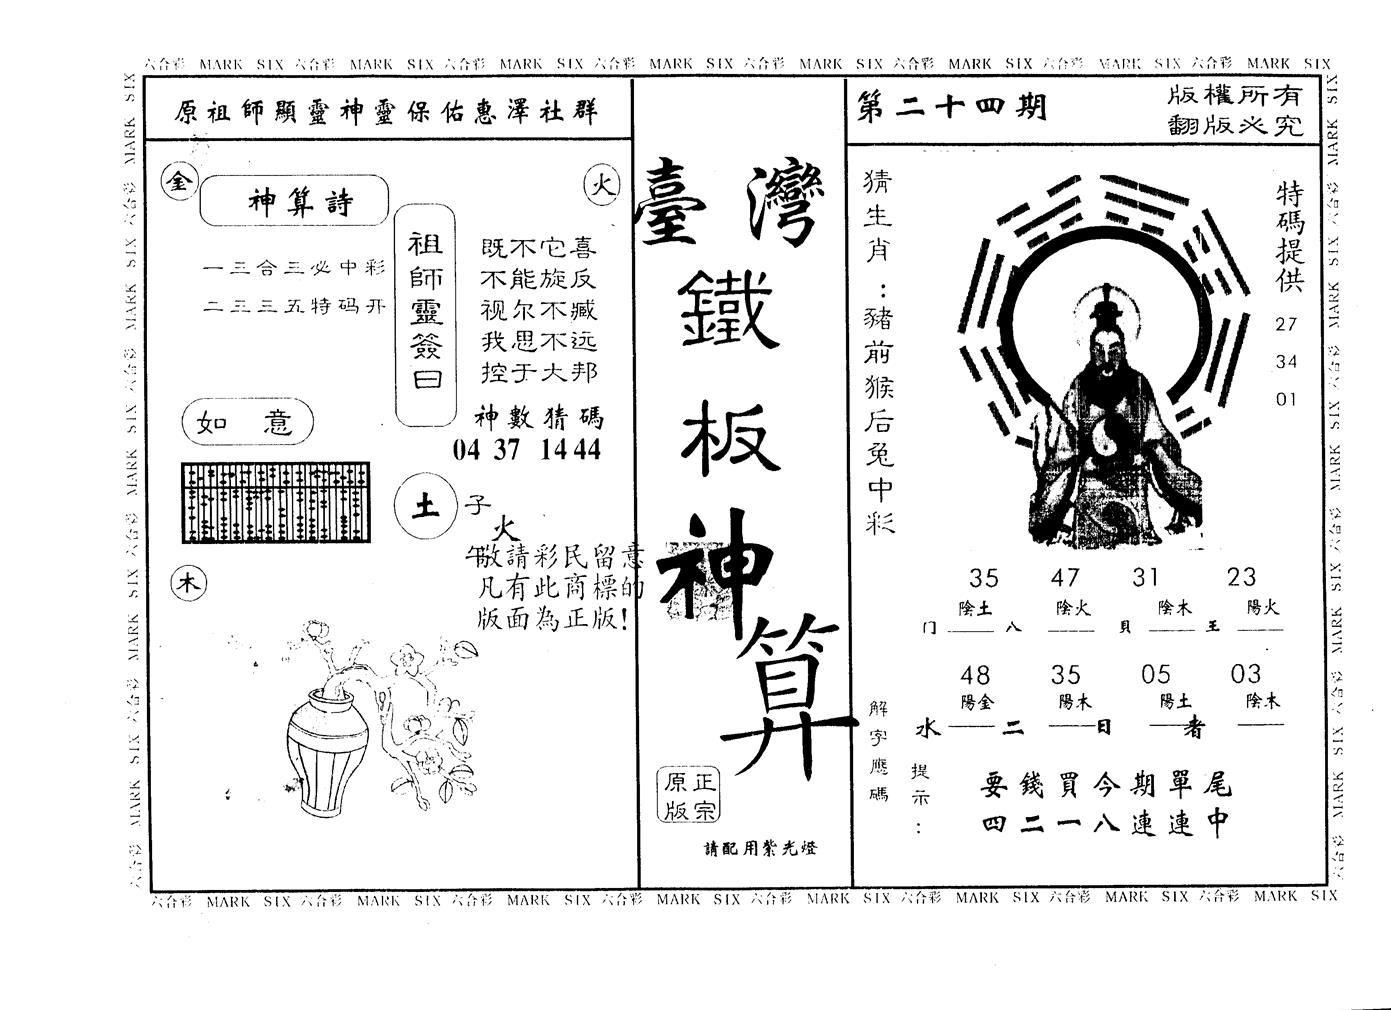 六合彩 MARK SIX 六合彩 MARK SIX 六合彩 MARK SIX 六合彩 MARK SIX 六合彩 MARK SIX 六合彩 MARK SIX 六合彩 MARK SIX 六合彩 MARK SIX
原祖師顯靈神靈保佑惠澤社群
金
神算詩
火
一三合三必中彩
二三三五特码开
祖師靈簽曰
既不它喜
不能旋反
视尔不臧
我思不远
控于大邦
神數猜碼
04 37 14 44
如意
土
子
火
午
敬請彩民留意
凡有此商標的
版面為正版!
木
臺灣
鐵
板
神
算
正宗
原版
請配用紫光燈
第二十四期
版權所有
翻版必究
猜生肖:豬前猴后兔中彩
特碼提供
27
34
01
35 47 31 23
陰土 陰火 陰木 陽火
门 八 貝 王
48 35 05 03
陽金 陽木 陽土 陰木
水 二 日 者
解字應碼
提示:
要錢買今期單尾
四二一八連連中
六合彩 MARK SIX 六合彩 MARK SIX 六合彩 MARK SIX 六合彩 MARK SIX 六合彩 MARK SIX 六合彩 MARK SIX 六合彩 MARK SIX 六合彩 MARK SIX